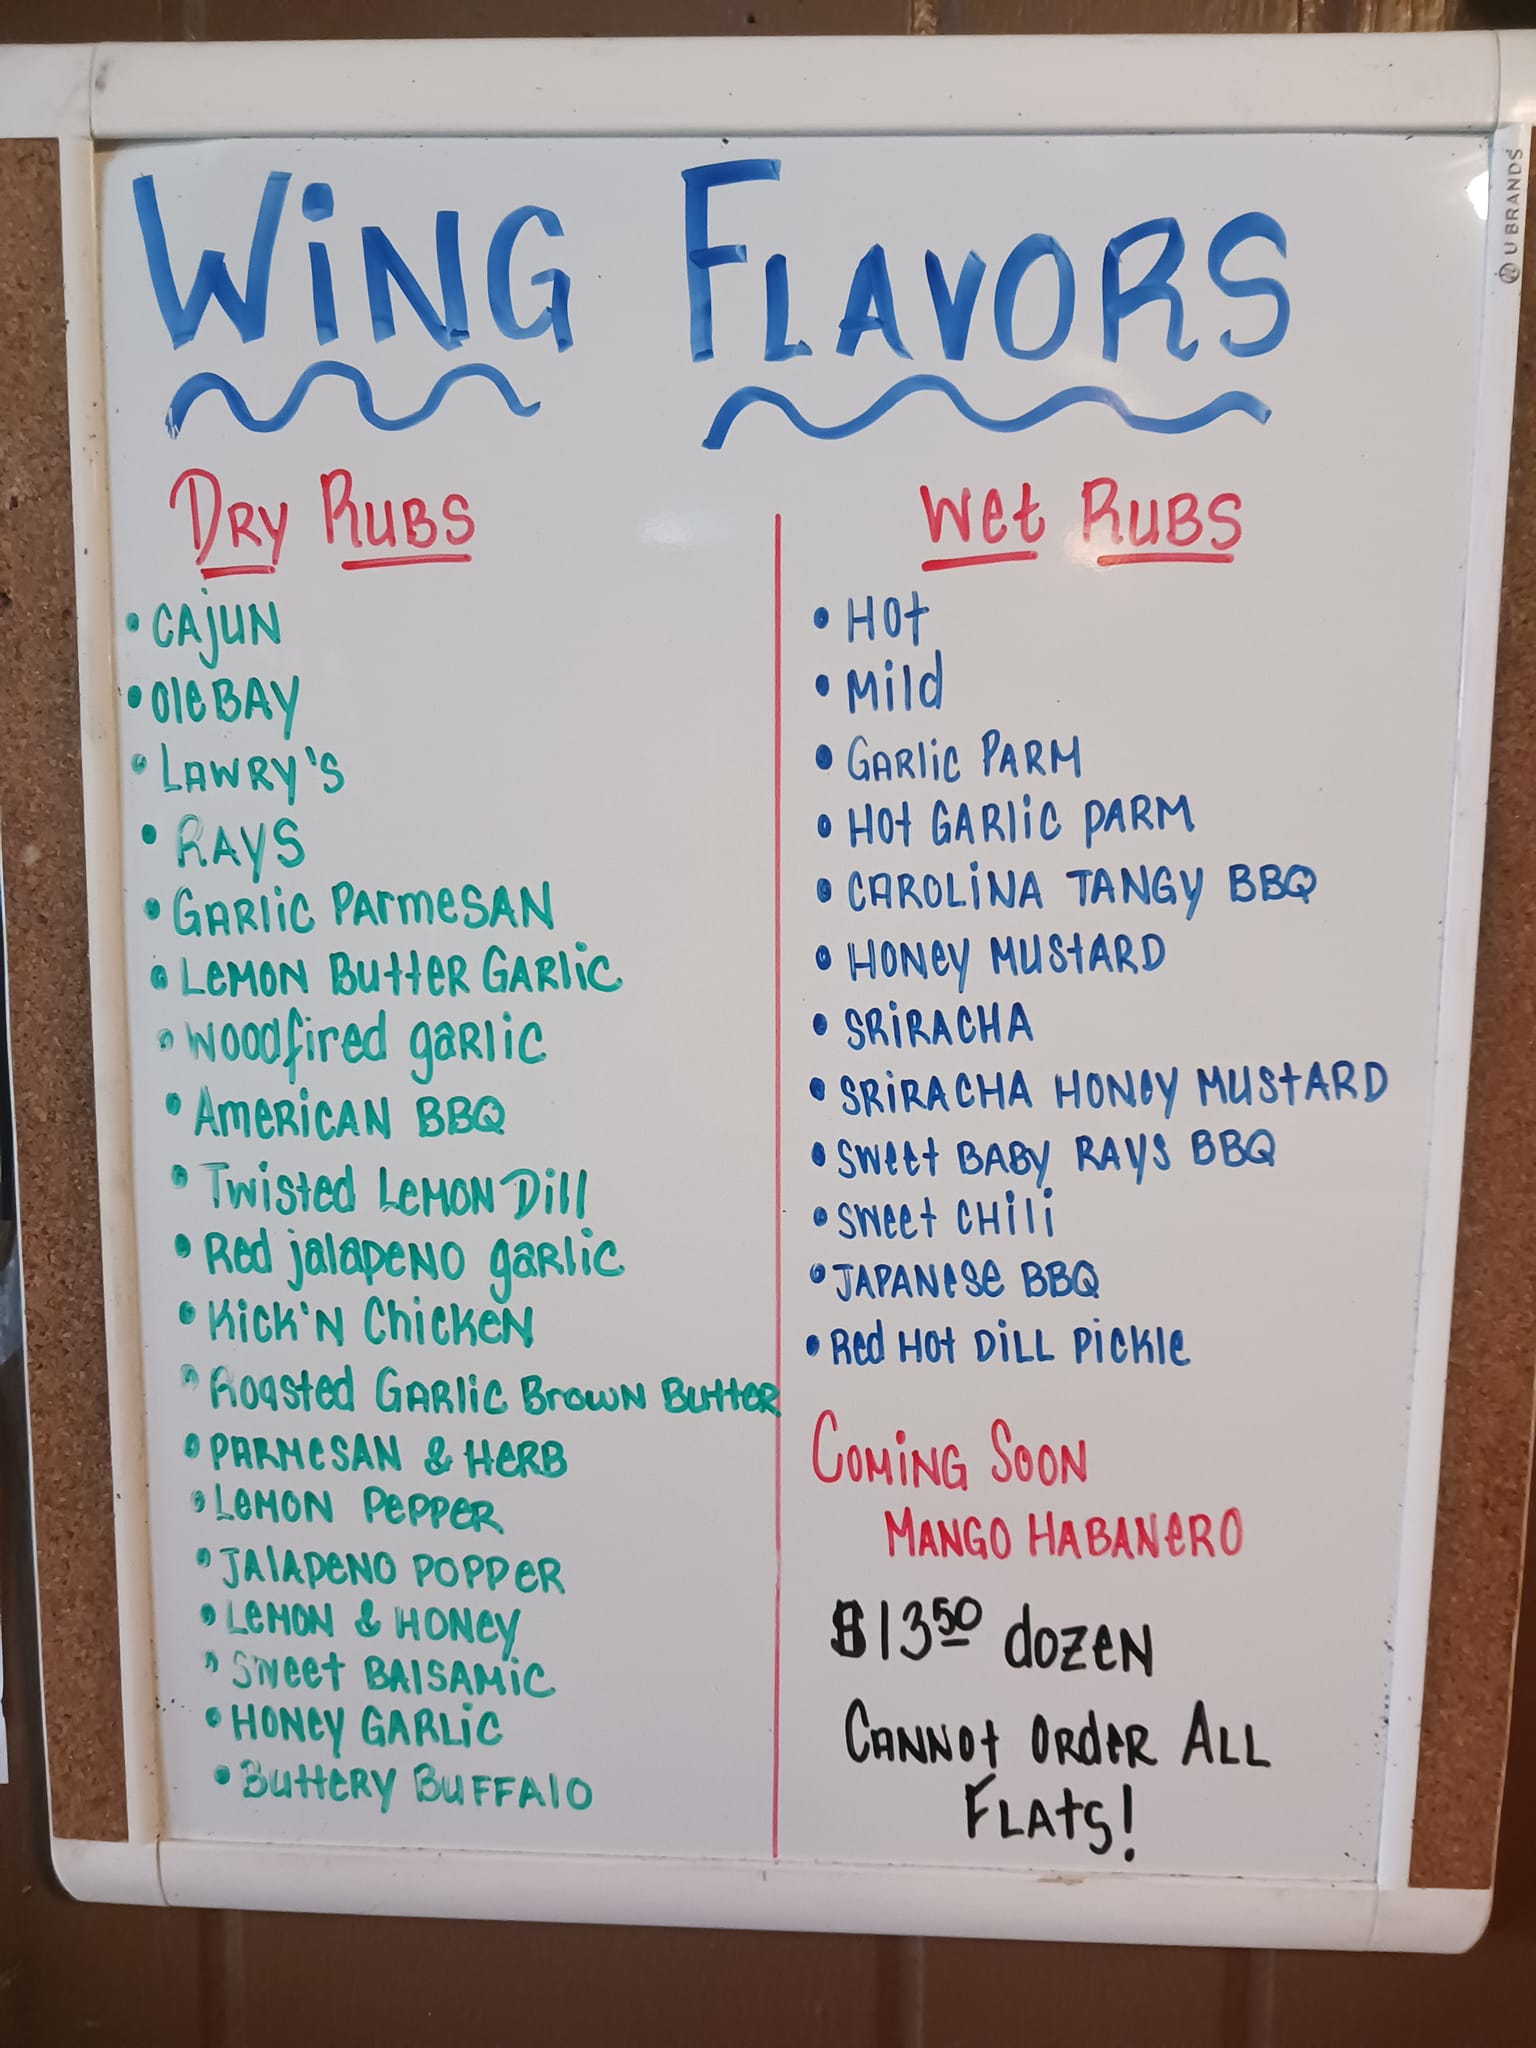 Wing Flavors
Dry Rubs
• Cajun
• Ole Bay
• Lawry's
• Rays
• Garlic Parmesan
• Lemon Butter Garlic
• Woodfired garlic
• American BBQ
• Twisted Lemon Dill
• Red jalapeno garlic
• Kick'n Chicken
• Roasted Garlic Brown Butter
• Parmesan & Herb
• Lemon Pepper
• Jalapeno Popper
• Lemon & Honey
• Sweet Balsamic
• Honey Garlic
• Buttery Buffalo
Wet Rubs
• Hot
• Mild
• Garlic Parm
• Hot Garlic Parm
• Carolina Tangy BBQ
• Honey Mustard
• Sriracha
• Sriracha Honey Mustard
• Sweet Baby Rays BBQ
• Sweet Chili
• Japanese BBQ
• Red Hot Dill Pickle
Coming Soon
Mango Habanero
$13.50 dozen
Cannot order All
Flats!
U BRANDS